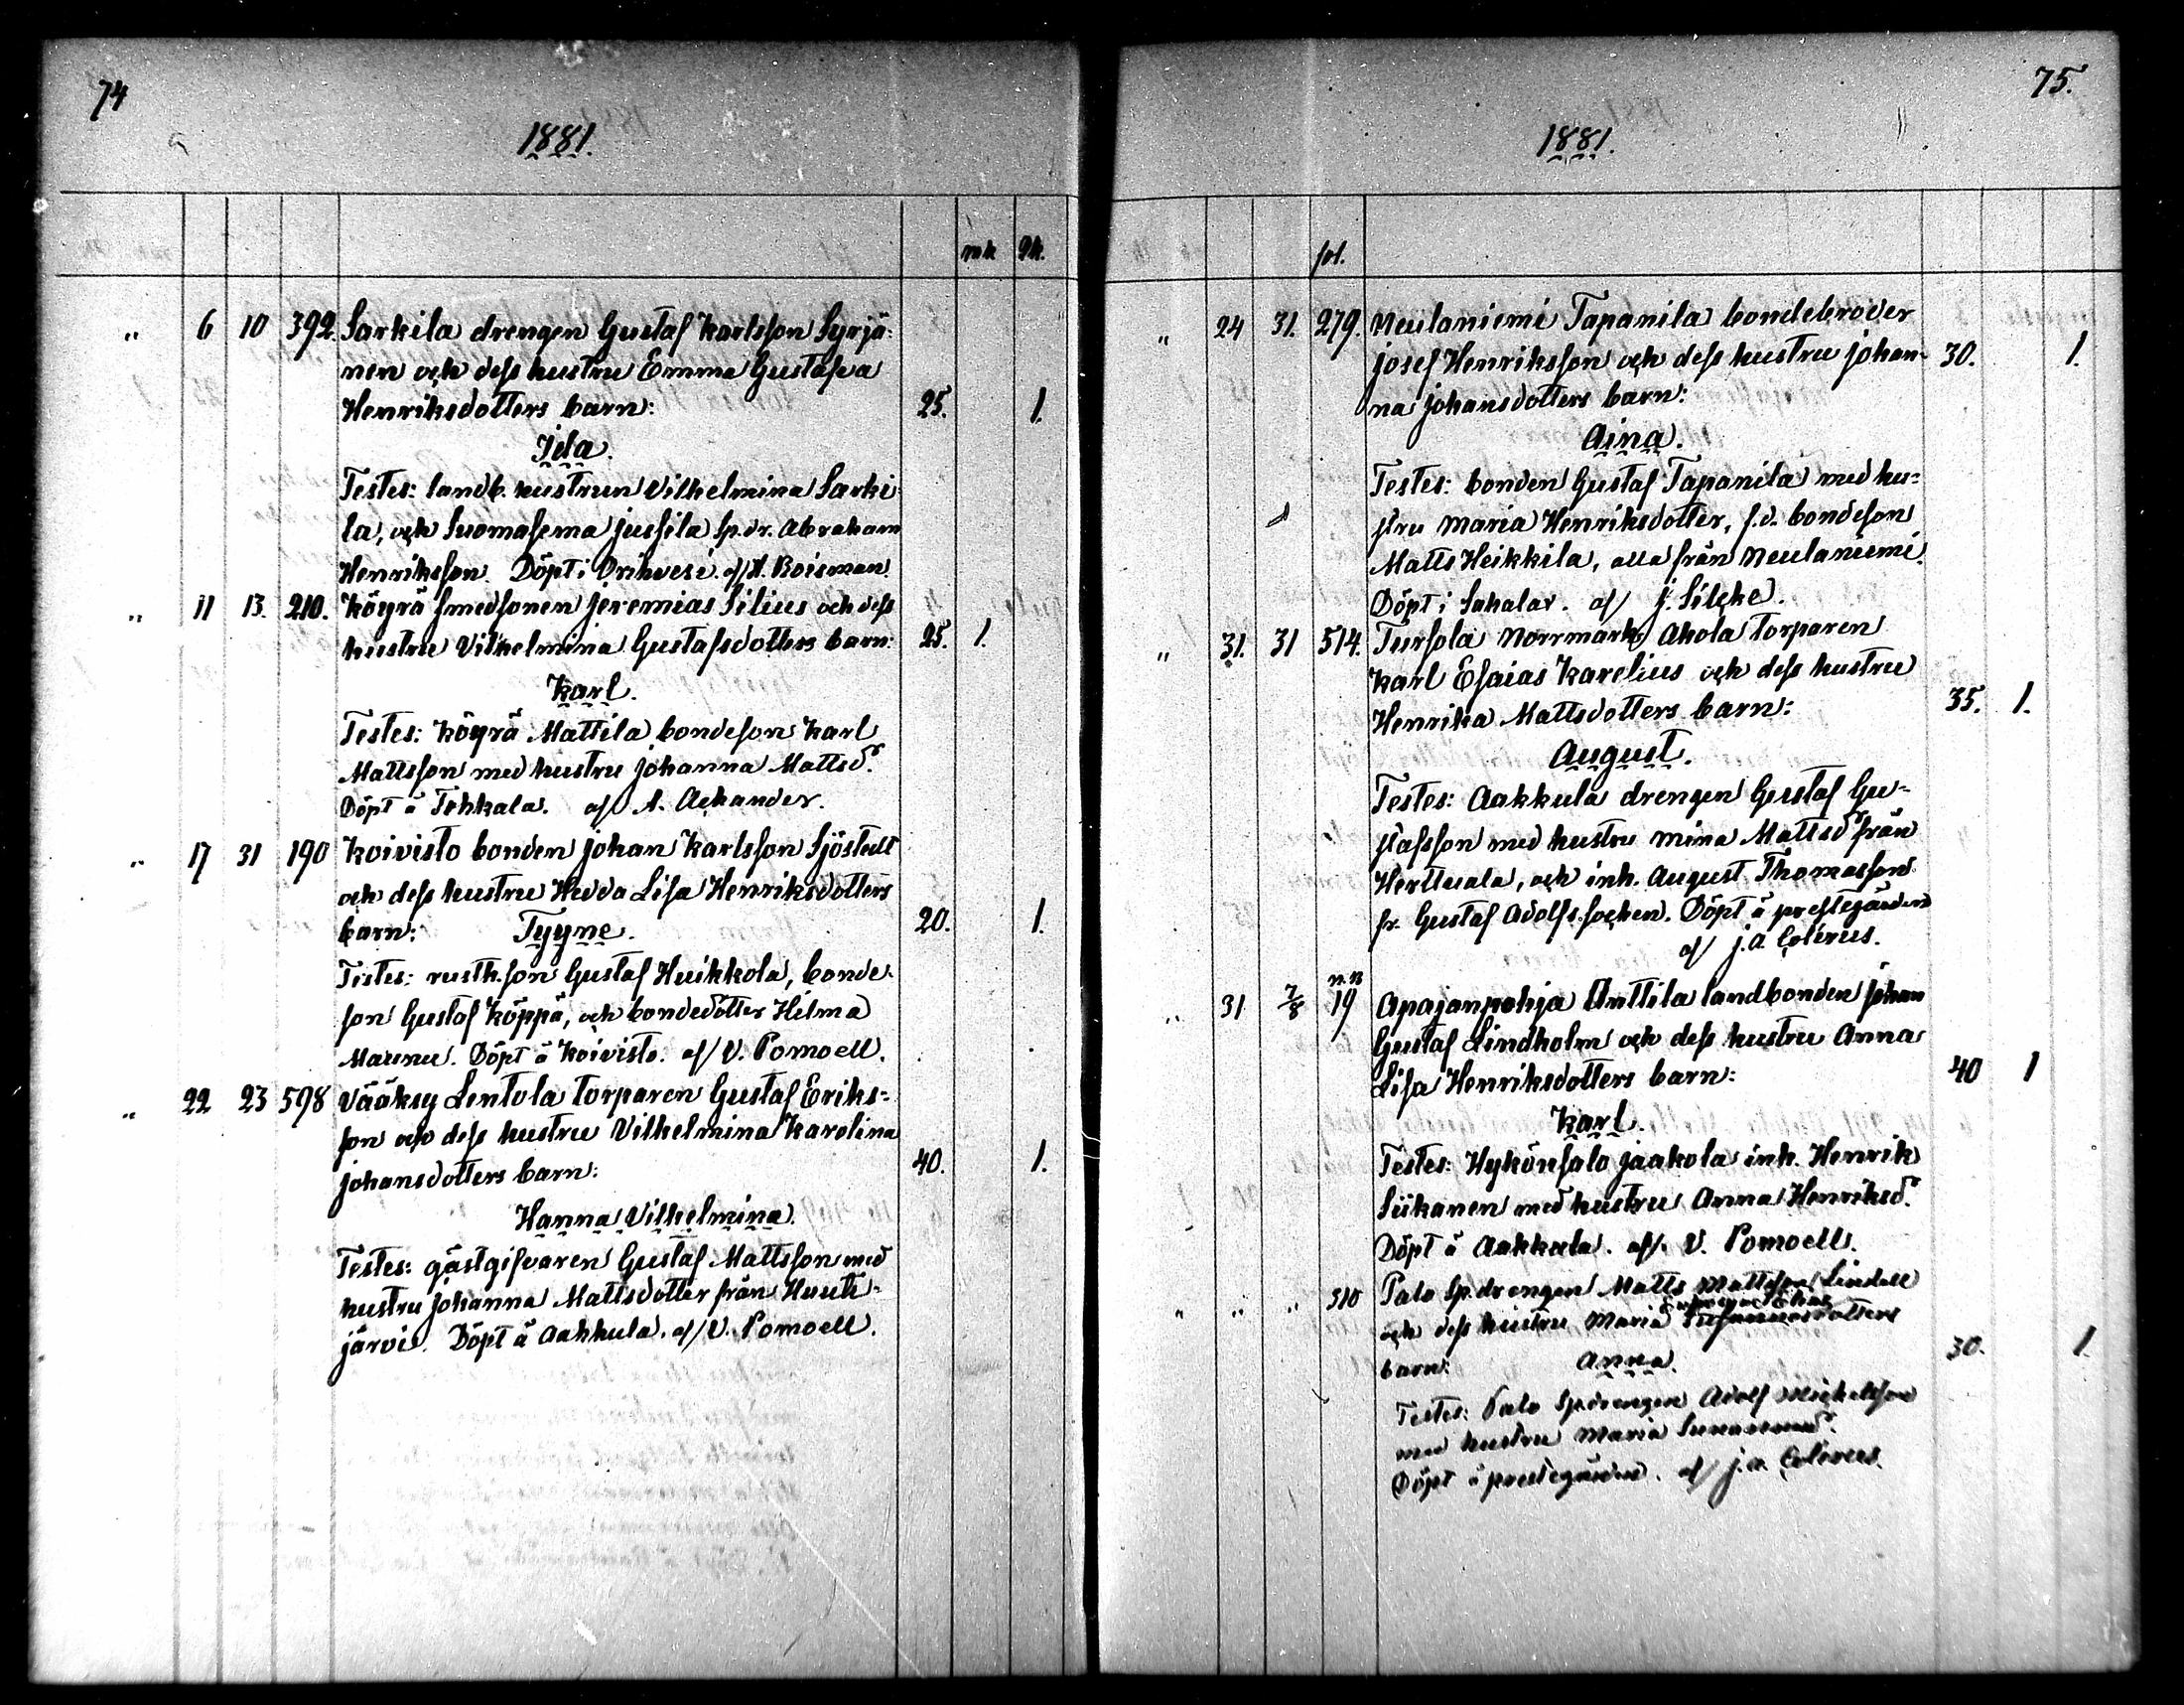 74
1881.
mk qk.
„ 6 10 392. Sarkila drengen Gustaf Karlsson Syrjä-
nen och dess hustru Emma Gustafva
Henriksdotters barn: 25. 1.
Ida.
Testes: landb. hustrun Vilhelmina Sarki
la, och Suomasema Jussila sp.dr. Abraham
Henriksson. Döpt i Orihvesi af A. Roisman.
„ 11 13. 210. Köyrä smedsonen Jeremias Silius och dess
hustru Vilhelmina Gustafsdotters barn: 25. 1.
Karl.
Testes: Köyrä Mattila bondeson Karl
Mattsson med hustru Johanna Mattsdr.
Döpt å Tohkala. af A. Ackander.
„ 17 31 190 Koivisto bonden Johan Karlsson Sjöstedt
och dess hustru Hedda Lisa Henriksdotters
barn: Tyyne. 20. 1.
Testes: rusth.son Gustaf Huikkola, bonde-
son Gustaf Köppä, och bondedotter Hilma
Maunu. Döpt å Koivisto. af V. Pomoell.
„ 22 23 598 Vääksy Lentola torparen Gustaf Eriks-
son och dess hustru Vilhelmina Karolina
Johansdotters barn: 40. 1.
Hanna Vilhelmina.
Testes: gästgifvaren Gustaf Mattsson med
hustru Johanna Mattsdotter från Huuti-
järvi. Döpt å Aakkula. af V. Pomoell.
75.
1881.
fol.
„ 24 31. 279. Neulaniemi Tapanila bondebroder
Josef Henriksson och dess hustru Johan- 30. 1.
na Johansdotters barn:
Aina.
Testes: bonden Gustaf Tapanila med hu-
stru Maria Henriksdotter, f.d. bondeson
Matts Heikkila, alla från Neulaniemi.
Döpt i Sahalax. af J. Silcke.
„ 31. 31 514. Tursola Norrmark Ahola torparen
Karl Esaias Karelius och dess hustru
Henrika Mattsdotters barn: 35. 1.
August.
Testes: Aakkula drengen Gustaf Gu-
stafsson med hustru Mina Mattsdr från
Herttuala, och inh. August Thomasson
fr. Gustaf Adolfs socken. Döpt å prestegården
af J. A. Colérus.
„ 31 7/8 19 Apajanpohja Anttila landbonden Johan
Gustaf Lindholm och dess hustru Anna
Lisa Henriksdotters barn: 40 1
Karl.
Testes: Hykönsalo Jaakola inh. Henrik
Siikanen med hustru Anna Henriksdr.
Döpt å Aakkula. af V. Pomoell.
„ „ „ 310 Palo sp.drengen Matts Mattsson Lindell
och dess hustru Maria
barn: Anna. 30. 1.
Testes: Palo sp.drengen Adolf Michelsson
med hustru Maria
Döpt å prestegården. af J. A. Colérus.